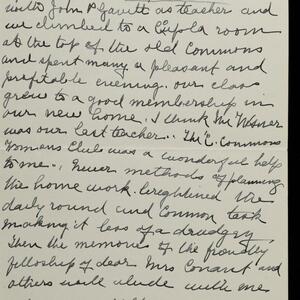 with John P. Gavitt as teacher and
we climbed to a Cupola room
at the top of the old Commons
and spent many a pleasant and
profitable evening. our class
grew to a good membership in
our new home. I think Mr
was our last teacher. The C. Commons
Womans Club was a wonderful help
to me. Newer methods of planning
the home work. brightined the
daily round and Common task
making it less of a drudgery,
Then the memories of the friendly
fellowship of dear Mrs Conant and
others will abide with me